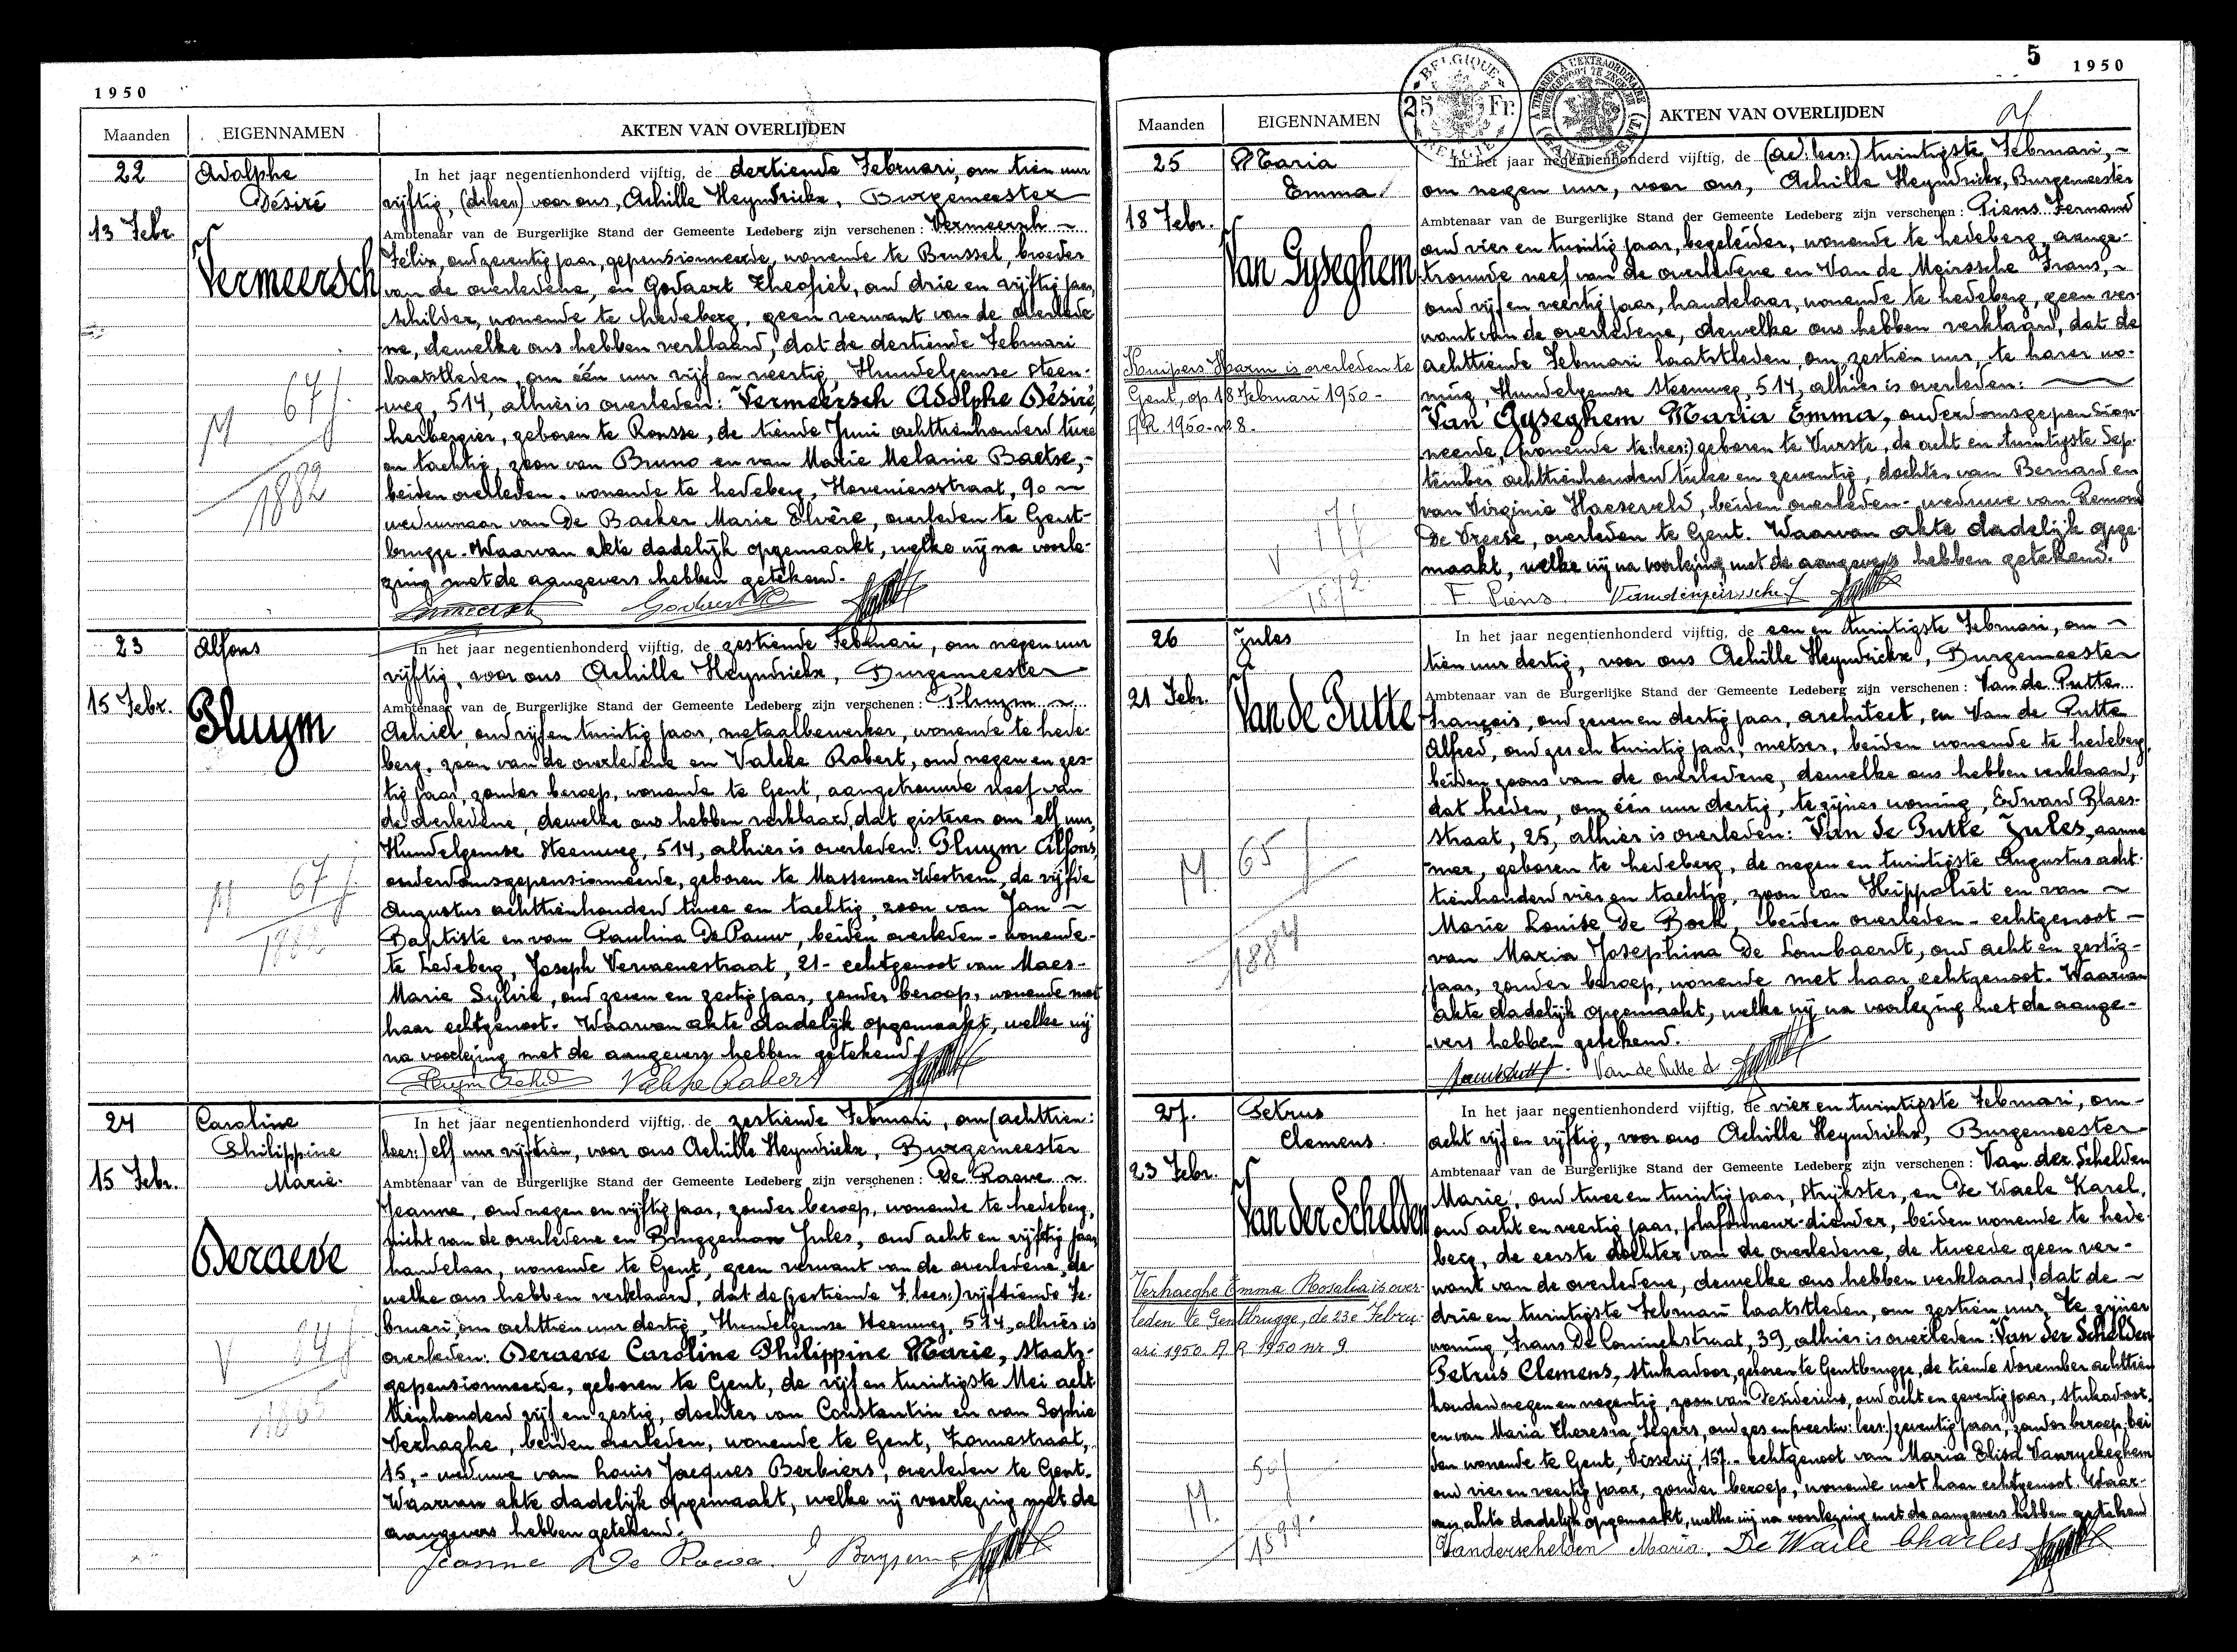 1950
Maanden EIGENNAMEN AKTEN VAN OVERLIJDEN
22
13 Febr.
Adolphe
Désiré
Vermeersch
M 67 j
1882
In het jaar negentienhonderd vijftig, de dertiende Februari, om tien uur
vijftig, voor ons, Achille Heyndrickx, Burgemeester
Ambtenaar van de Burgerlijke Stand der Gemeente Ledeberg zijn verschenen: Vermeersch
Félix, oud zeventig jaar, gepensionneerde, wonende te Brussel, broeder
van de overledene, en Godaert Theofiel, oud drie en vijftig jaar,
schilder, wonende te Ledeberg, geen verwant van de overlede
ne, dewelke ons hebben verklaard, dat de dertiende Februari
laatstleden, om één uur vijf en veertig, Hundelgemse steen-
weg, 514, alhier is overleden: Vermeersch Adolphe Désiré,
herbergier, geboren te Ronsse, de tiende Juni achttienhonderd twee
en tachtig, zoon van Bruno en van Marie Melanie Baetse,-
beiden overleden. wonende te Ledeberg, Hoveniersstraat, 90
weduwnaar van De Backer Marie Elvère, overleden te Gent-
brugge. Waarvan akte dadelijk opgemaakt, welke wij na voorle-
zing met de aangevers hebben getekend.
23
15 Febr.
Alfons
Pluym
M 67 j
1882
In het jaar negentienhonderd vijftig, de zestiende Februari, om negen uur
vijftig, voor ons Achille Heyndrickx, Burgemeester
Ambtenaar van de Burgerlijke Stand der Gemeente Ledeberg zijn verschenen: Pluym
Achiel, oud vijf en twintig jaar, metaalbewerker, wonende te Lede-
berg, zoon van de overledene en Valcke Robert, oud negen en zes-
tig jaar, zonder beroep, wonende te Gent, aangetrouwde neef van
de overledene, dewelke ons hebben verklaard, dat gisteren om elf uur,
Hundelgemse steenweg, 514, alhier is overleden: Pluym Alfons,
ouderdomsgepensionneerde, geboren te Massemen Westrem, de vijfde
Augustus achttienhonderd twee en tachtig, zoon van Jan
Baptiste en van Paulina De Pauw, beiden overleden - wonende
te Ledeberg, Joseph Vervaenestraat, 21 - echtgenoot van Maes-
Marie Sylvie, oud zeven en zestig jaar, zonder beroep, wonende met
haar echtgenoot. Waarvan akte dadelijk opgemaakt, welke wij
na voorlezing met de aangevers hebben getekend.
Pluym Achiel Valcke Robert
24
15 Febr.
Caroline
Philippine
Marie.
Deraeve
V 84 j
1865
In het jaar negentienhonderd vijftig, de zestiende Februari, om (achttien:
lees:) elf uur vijftien, voor ons Achille Heyndrickx, Burgemeester
Ambtenaar van de Burgerlijke Stand der Gemeente Ledeberg zijn verschenen: De Raeve
Jeanne, oud negen en vijftig jaar, zonder beroep, wonende te Ledeberg,
nicht van de overledene en Bruggeman Jules, oud acht en vijftig jaar,
handelaar, wonende te Gent, geen verwant van de overledene, de
welke ons hebben verklaard, dat de (zestiende F. lees:) vijftiende Fe-
bruari, om achttien uur dertig, Hundelgemse steenweg, 514, alhier is
overleden: Deraeve Caroline Philippine Marie, staats-
gepensionneerde, geboren te Gent, de vijf en twintigste Mei acht
tienhonderd vijf en zestig, dochter van Constantin en van Sophie
Verhaghe, beiden overleden, wonende te Gent,
15,- weduwe van Louis Jacques Berbiers, overleden te Gent.
Waarvan akte dadelijk opgemaakt, welke wij voorlezing met de
aangevers hebben getekend.
Jeanne De Raeve.
5 1950
BELGIQUE 25 Fr. BELGIE
Maanden EIGENNAMEN AKTEN VAN OVERLIJDEN
25
18 Febr.
Maria
Emma
Van Gyseghem
Kuipers Harm is overleden te
Gent, op 18 Februari 1950 -
A.R. 1950 - nr 8.
V 77 j
1872
In het jaar negentienhonderd vijftig, de twintigste Februari,
om negen uur, voor ons, Achille Heyndrickx, Burgemeester
Ambtenaar van de Burgerlijke Stand der Gemeente Ledeberg zijn verschenen: Piens Fernand
oud vier en twintig jaar, begeleider, wonende te Ledeberg, aange-
trouwde neef van de overledene en Van de Meirssche Frans,
oud vijf en veertig jaar, handelaar, wonende te Ledeberg, geen ver-
want van de overledene, dewelke ons hebben verklaard, dat de
achttiende Februari laatstleden, om zestien uur, te harer wo-
ning, Hundelgemse steenweg, 514, alhier is overleden:
Van Gyseghem Maria Emma, ouderdomsgepension-
neerde, (wonende te: lees:) geboren te Vurste, de acht en twintigste Sep-
tember achttienhonderd twee en zeventig, dochter van Bernard en
van Virginie Haeseveld, beiden overleden - weduwe van Remond
De Vreese, overleden te Gent. Waarvan akte dadelijk opge-
maakt, welke wij na voorlezing met de aangevers hebben getekend.
F. Piens.
26
21 Febr.
Jules
Van de Putte
M. 65 j
1884
In het jaar negentienhonderd vijftig, de een en twintigste Februari, om
tien uur dertig, voor ons Achille Heyndrickx, Burgemeester
Ambtenaar van de Burgerlijke Stand der Gemeente Ledeberg zijn verschenen: Van de Putte
François, oud zeven en dertig jaar, architect, en Van de Putte
Alfred, oud zes en twintig jaar, metser, beiden wonende te Ledeberg,
beiden zoons van de overledene, dewelke ons hebben verklaard,
dat heden, om één uur dertig, te zijner woning, Edward Blaes-
straat, 25, alhier is overleden: Van de Putte Jules, aanne
mer, geboren te Ledeberg, de negen en twintigste Augustus acht-
tienhonderd vier en tachtig, zoon van Hippoliet en van
Marie Louise De Bock, beiden overleden - echtgenoot
van Maria Josephina De Lombaerdt, oud acht en zestig-
jaar, zonder beroep, wonende met haar echtgenoot. Waarvan
akte dadelijk opgemaakt, welke wij na voorlezing met de aange-
vers hebben getekend.
Van de Putte A
27.
23 Febr.
Petrus
Clemens.
Van der Schelden
Verhaeghe Emma Rosalia is over-
leden te Gentbrugge, de 23e Febru-
ari 1950. A R 1950 nr 9
M. 50 j
1899.
In het jaar negentienhonderd vijftig, de vier en twintigste Februari, om
acht vijf en vijftig, voor ons Achille Heyndrickx, Burgemeester
Ambtenaar van de Burgerlijke Stand der Gemeente Ledeberg zijn verschenen: Van der Schelden
Marie, oud twee en twintig jaar, strijkster, en De Waele Karel,
oud acht en veertig jaar, plafonneur-diender, beiden wonende te Lede-
berg, de eerste dochter van de overledene, de tweede geen ver-
want van de overledene, dewelke ons hebben verklaard, dat de
drie en twintigste Februari laatstleden, om zestien uur, te zijner
woning, Frans De Coninckstraat, 39, alhier is overleden: Van der Schelden
Petrus Clemens, stukadoor, geboren te Gentbrugge, de tiende November achttien
honderd negen en negentig, zoon van Desiderius, oud acht en zeventig jaar, stukadoor,
en van Maria Theresia Segers, oud zes en (veertig: lees:) zeventig jaar, zonder beroep, bei
den wonende te Gent, Visserij, 157 - echtgenoot van Maria Elisa Vanryckeghem
oud vier en veertig jaar, zonder beroep, wonende met haar echtgenoot. Waar-
van akte dadelijk opgemaakt, welke wij na voorlezing met de aangevers hebben getekend
Vanderschelden Maria. De Waele Charles